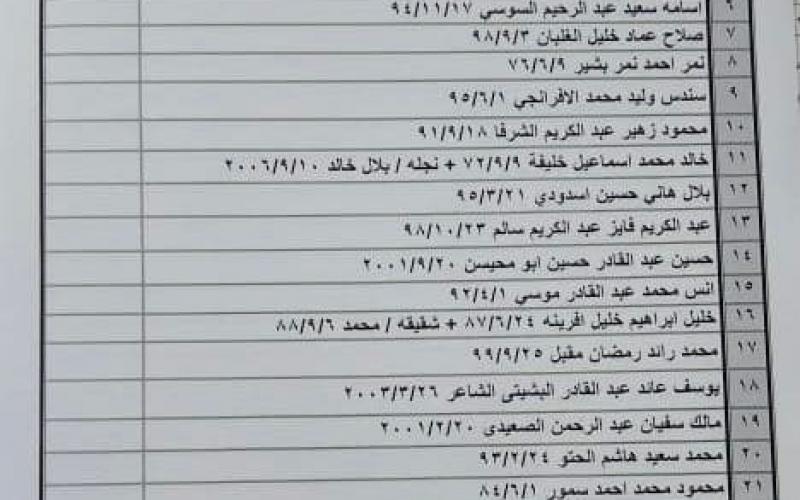 ٦ اسامه سعيد عبد الرحيم السوسي ٩٤/١١/١٧
٧ صلاح عماد خليل الغلبان ٩٨/٩/٣
٨ نمر احمد نمر بشير ٧٦/٦/٩
٩ سندس وليد محمد الافرانجي ٩٥/٦/١
١٠ محمود زهير عبد الكريم الشرفا ٩١/٩/١٨
١١ خالد محمد اسماعيل خليفة ٧٢/٩/٩ + نجله / بلال خالد ٢٠٠٦/٩/١٠
١٢ بلال هاني حسين اسدودي ٩٥/٣/٢١
١٣ عبد الكريم فايز عبد الكريم سالم ٩٨/١٠/٢٣
١٤ حسين عبد القادر حسين ابو محيسن ٢٠٠١/٩/٢٠
١٥ انس محمد عبد القادر موسي ٩٢/٤/١
١٦ خليل ابراهيم خليل افرينه ٨٧/٦/٢٤ + شقيقه / محمد ٨٨/٩/٦
١٧ محمد رائد رمضان مقبل ٩٩/٩/٢٥
١٨ يوسف عائد عبد القادر البشيتى الشاعر ٢٠٠٣/٣/٢٦
١٩ مالك سفيان عبد الرحمن الصعيدى ٢٠٠١/٢/٢٠
٢٠ محمد سعيد هاشم الحتو ٩٣/٢/٢٤
٢١ محمود محمد احمد سمور ٨٤/٦/١